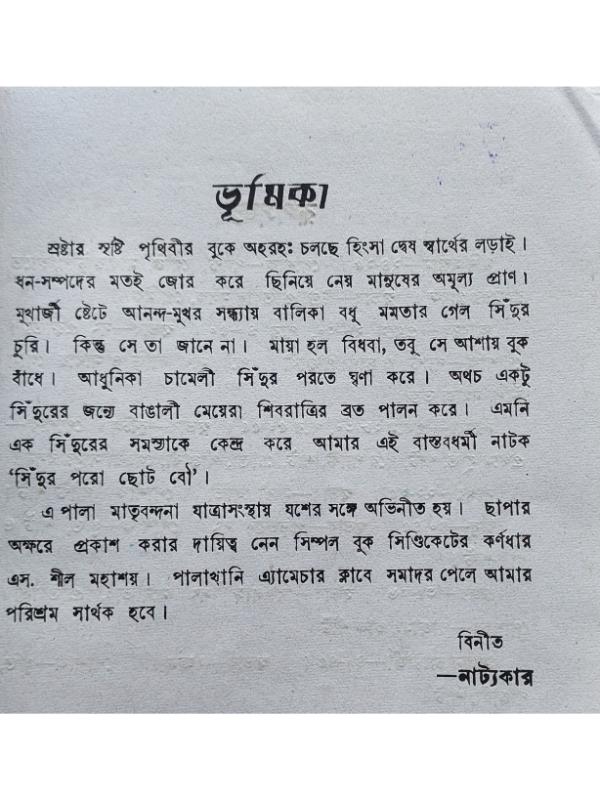 ভূমিকা
স্রষ্টার সৃষ্টি পৃথিবীর বুকে অহরহঃ চলছে হিংসা দ্বেষ স্বার্থের লড়াই।
ধন-সম্পদের মতই জোর করে ছিনিয়ে নেয় মানুষের অমূল্য প্রাণ।
মুখার্জী ষ্টেটে আনন্দ-মুখর সন্ধ্যায় বালিকা বধূ মমতার গেল সিঁদুর
চুরি। কিন্তু সে তা জানে না। মায়া হল বিধবা, তবু সে আশায় বুক
বাঁধে। আধুনিকা চামেলী সিঁদুর পরতে ঘৃণা করে। অথচ একটু
সিঁদুরের জন্যে বাঙালী মেয়েরা শিবরাত্রির ব্রত পালন করে। এমনি
এক সিঁদুরের সমস্যাকে কেন্দ্র করে আমার এই বাস্তবধর্মী নাটক
‘সিঁদুর পরো ছোট বৌ’।
এ পালা মাতৃবন্দনা যাত্রাসংস্থায় যশের সঙ্গে অভিনীত হয়। ছাপার
অক্ষরে প্রকাশ করার দায়িত্ব নেন সিম্পল বুক সিণ্ডিকেটের কর্ণধার
এস. শীল মহাশয়। পালাখানি এ্যামেচার ক্লাবে সমাদর পেলে আমার
পরিশ্রম সার্থক হবে।
বিনীত
—নাট্যকার